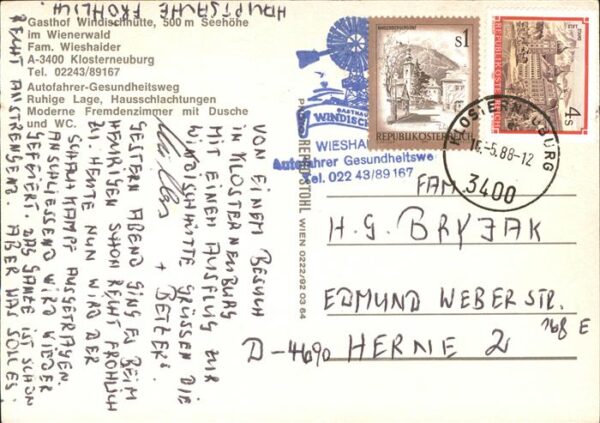 Gasthof Windischhütte, 500 m Seehöhe
im Wienerwald
Fam. Wieshaider
A-3400 Klosterneuburg
Tel. 02243/89167
Autofahrer-Gesundheitsweg
Ruhige Lage, Hausschlachtungen
Moderne Fremdenzimmer mit Dusche
und WC
VON EINEM BESUCH
IN KLOSTERNEUBURG
MIT EINEM AUSFLUG ZUR
WINDISCHHÜTTE GRÜSSEN DIE
Müllers + BETZERS
GESTERN ABEND GING ES BEIM
HEURIGEN SCHON RECHT FRÖHLICH
ZU. HEUTE NUN WIRD DER
SCHAUKAMPF AUSGETRAGEN.
ANSCHLIESSEND WIRD WIEDER
GEFEIERT. DAS GANZE IST SCHÖN
RECHT ANSTRENGEND. ABER WAS SOLL ES.
HAUPTSACHE FRÖHLICH.
STOHL WIEN 0222/92 03 64
S1
REPUBLIK ÖSTERREICH
4S
REPUBLIK ÖSTERREICH
STIFT
KLOSTERNEUBURG
16.-5.88-12
3400
GASTHAUS
WINDISCH
WIESHA
Autofahrer Gesundheitswe
Tel. 022 43/89 167
FAM.
H.G. BRYJAK
EDMUND WEBER STR.
168 E
D-4690 HERNE 2